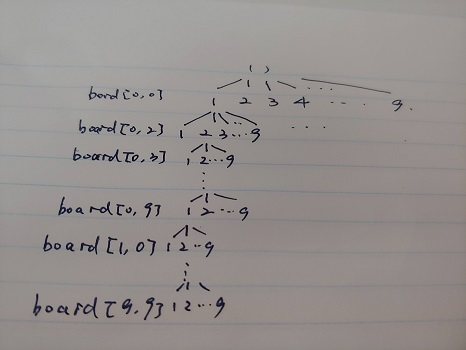 ( )
bord[0,0] 1 2 3 4 ... 9.
board[0,2] 1 2 3...9 ...
board[0,3] 1 2...9
board[0,9] 1 2...9
board[1,0] 1 2..9
board[9,9] 1 2...9